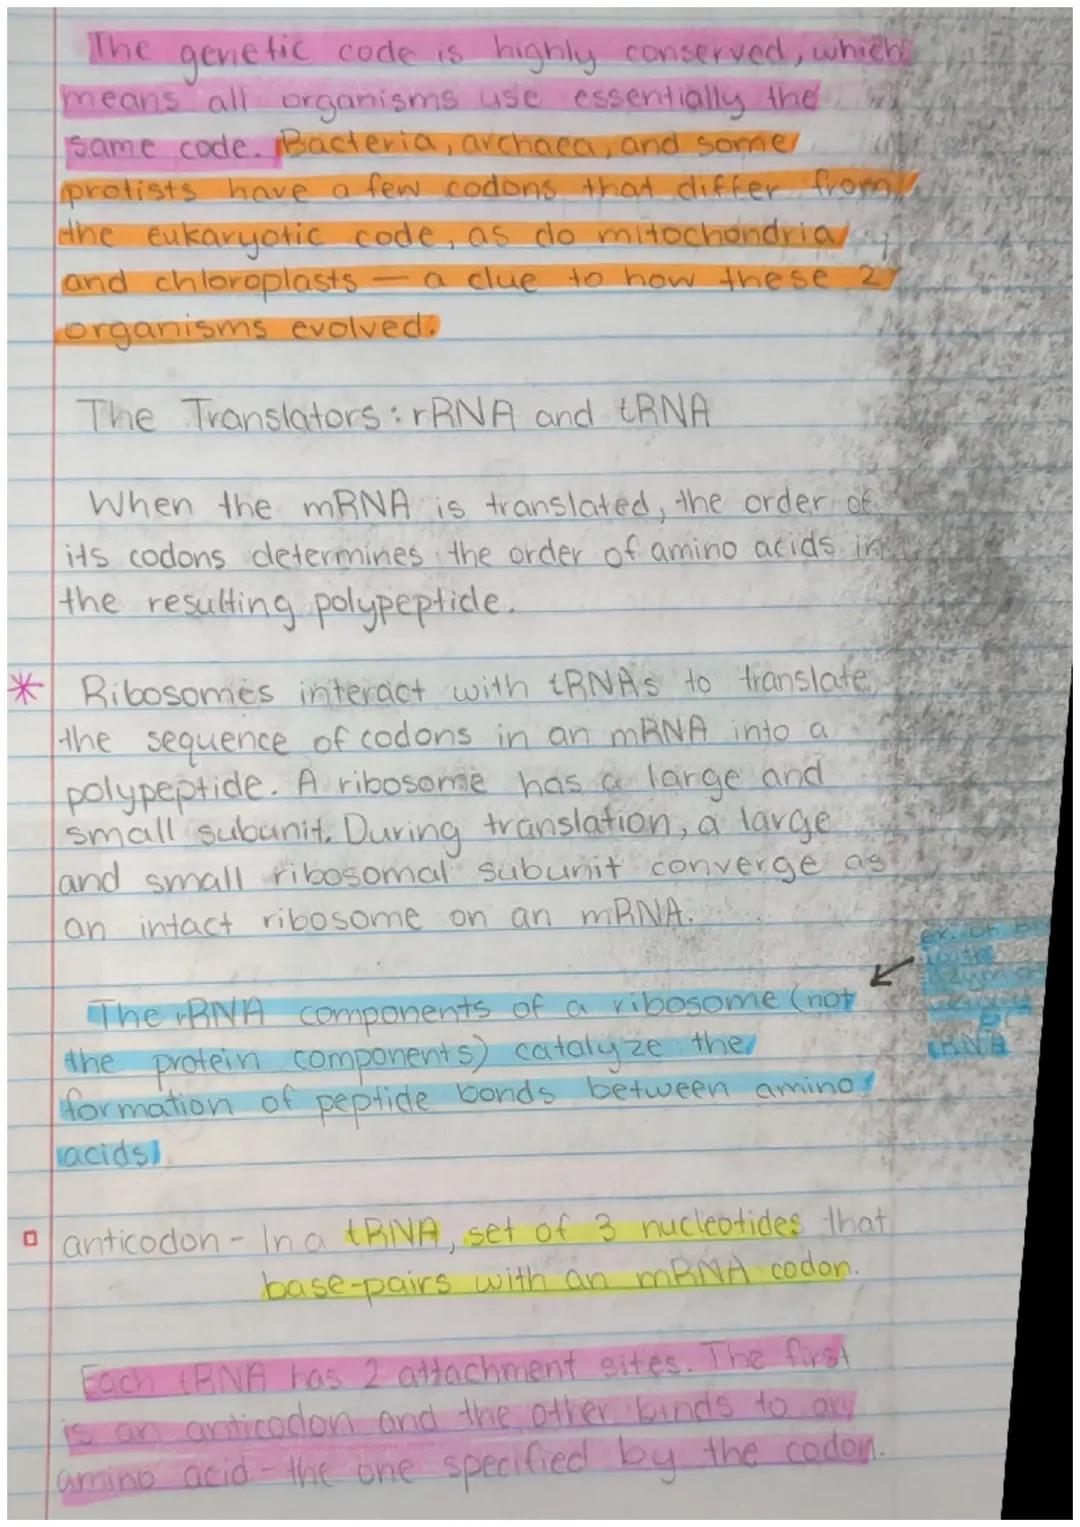 The genetic code is highly conserved, which
means all organisms use essentially the
same code. Bacteria, archaea, and some
protists have a few codons that differ from
the eukaryotic code, as do mitochondria
and chloroplasts — a clue to how these 2
organisms evolved.
The Translators: rRNA and tRNA
When the mRNA is translated, the order of
its codons determines the order of amino acids in
the resulting polypeptide.
* Ribosomes interact with tRNAs to translate
the sequence of codons in an mRNA into a
polypeptide. A ribosome has a large and
small subunit. During translation, a large
and small ribosomal subunit converge as
an intact ribosome on an mRNA.
ex. of
The rRNA components of a ribosome (not
the protein components) catalyze the
formation of peptide bonds between amino
acids.
anticodon - In a tRNA, set of 3 nucleotides that
base-pairs with an mRNA codon.
Each tRNA has 2 attachment sites. The first
is an anticodon and the other binds to an
amino acid - the one specified by the codon.